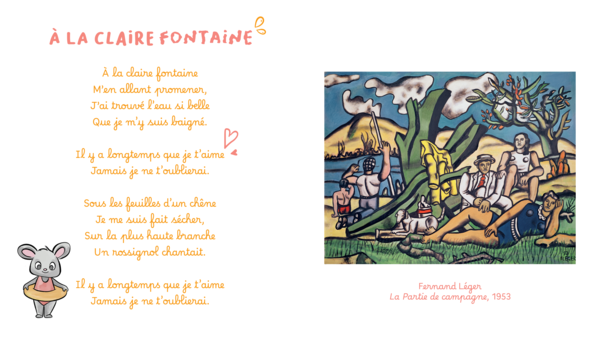 À LA CLAIRE FONTAINE
À la claire fontaine
M'en allant promener,
J'ai trouvé l'eau si belle
Que je m'y suis baigné.
Il y a longtemps que je t'aime
Jamais je ne t'oublierai.
Sous les feuilles d'un chêne
Je me suis fait sécher,
Sur la plus haute branche
Un rossignol chantait.
Il y a longtemps que je t'aime
Jamais je ne t'oublierai.
Fernand Léger
La Partie de campagne, 1953